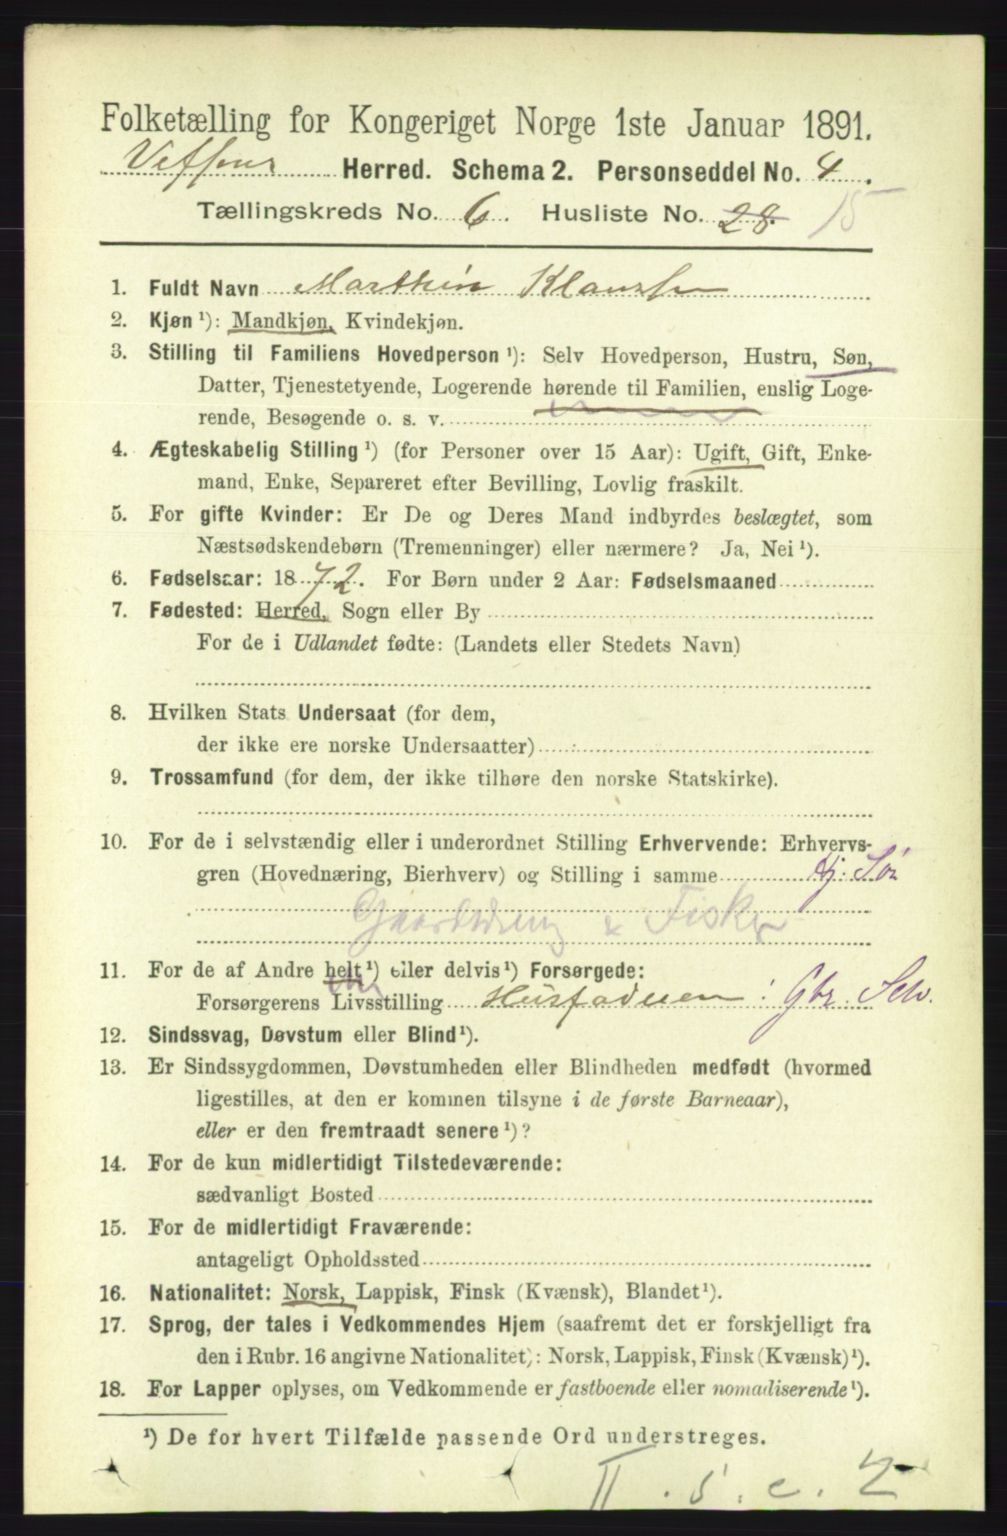 Folketælling for Kongeriget Norge 1ste Januar 1891.
Vefsens Herred. Schema 2. Personseddel No. 4.
Tællingskreds No. 6. Husliste No. 28 15
1. Fuldt Navn Marthin Klausen
2. Kjøn ¹): Mandkjøn, Kvindekjøn.
3. Stilling til Familiens Hovedperson ¹): Selv Hovedperson, Hustru, Søn,
Datter, Tjenestetyende, Logerende hørende til Familien, enslig Loge-
rende, Besøgende o. s. v.
4. Ægteskabelig Stilling ¹) (for Personer over 15 Aar): Ugift, Gift, Enke-
mand, Enke, Separeret efter Bevilling, Lovlig fraskilt.
5. For gifte Kvinder: Er De og Deres Mand indbyrdes beslægtet, som
Næstsødskendebørn (Tremenninger) eller nærmere? Ja, Nei ¹).
6. Fødselsaar: 1872. For Børn under 2 Aar: Fødselsmaaned
7. Fødested: Herred, Sogn eller By
For de i Udlandet fødte: (Landets eller Stedets Navn)
8. Hvilken Stats Undersaat (for dem,
der ikke ere norske Undersaatter)
9. Trossamfund (for dem, der ikke tilhøre den norske Statskirke).
10. For de i selvstændig eller i underordnet Stilling Erhvervende: Erhvervs-
gren (Hovednæring, Bierhverv) og Stilling i samme Hj. Søn
Gaardsdreng & Fisker
11. For de af Andre helt ¹) eller delvis ¹) Forsørgede:
Forsørgerens Livsstilling Husfaderen: Gbr. Selv.
12. Sindssvag, Døvstum eller Blind ¹).
13. Er Sindssygdommen, Døvstumheden eller Blindheden medfødt (hvormed
ligestilles, at den er kommen tilsyne i de første Barneaar),
eller er den fremtraadt senere ¹)?
14. For de kun midlertidigt Tilstedeværende:
sædvanligt Bosted
15. For de midlertidigt Fraværende:
antageligt Opholdssted
16. Nationalitet: Norsk, Lappisk, Finsk (Kvænsk), Blandet ¹).
17. Sprog, der tales i Vedkommendes Hjem (saafremt det er forskjelligt fra
den i Rubr. 16 angivne Nationalitet): Norsk, Lappisk, Finsk (Kvænsk) ¹).
18. For Lapper oplyses, om Vedkommende er fastboende eller nomadiserende ¹).
¹) De for hvert Tilfælde passende Ord understreges.
II. 5. c. 2